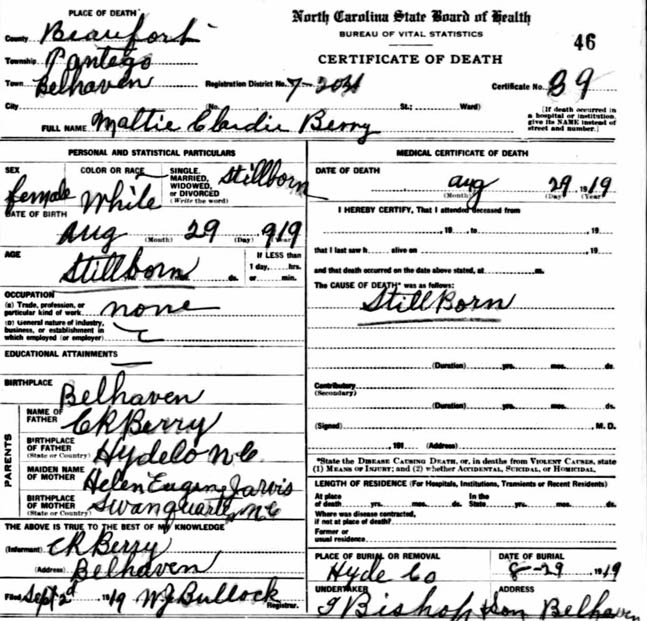 PLACE OF DEATH
North Carolina State Board of Health
County Beaufort
BUREAU OF VITAL STATISTICS
46
Township Pantego
CERTIFICATE OF DEATH
Town Belhaven Registration District No. 7-2041 Certificate No. 89
City (No. St.; Ward)
[If death occurred in a hospital or institution, give its NAME instead of street and number.]
FULL NAME Mattie Claudie Berry
PERSONAL AND STATISTICAL PARTICULARS
SEX female
COLOR OR RACE White
SINGLE, MARRIED, WIDOWED, or DIVORCED (Write the word) Stillborn
DATE OF BIRTH
Aug 29 919
(Month) (Day) (Year)
AGE
Stillborn ds.
If LESS than 1 day, hrs. or min.
OCCUPATION
(a) Trade, profession, or particular kind of work none
(b) General nature of industry, business, or establishment in which employed (or employer)
EDUCATIONAL ATTAINMENTS
BIRTHPLACE Belhaven
PARENTS
NAME OF FATHER C R Berry
BIRTHPLACE OF FATHER (State or Country) Hyde Co N C.
MAIDEN NAME OF MOTHER Helen Eugene Jarvis
BIRTHPLACE OF MOTHER (State or Country) Swanquarter, N C
THE ABOVE IS TRUE TO THE BEST OF MY KNOWLEDGE
(Informant) C R Berry
(Address) Belhaven
Filed Sept 2d 1919 W J Bullock
Registrar.
MEDICAL CERTIFICATE OF DEATH
DATE OF DEATH
Aug 29 1919
(Month) (Day) (Year)
I HEREBY CERTIFY, That I attended deceased from
, 19 , to , 19
that I last saw h alive on , 19
and that death occurred on the date above stated, at m.
The CAUSE OF DEATH* was as follows:
Still Born
(Duration) yrs. mos. ds.
Contributory
(Secondary)
(Duration) yrs. mos. ds.
(Signed) M. D.
, 191 . (Address)
*State the DISEASE CAUSING DEATH, or, in deaths from VIOLENT CAUSES, state
(1) MEANS OF INJURY; and (2) whether ACCIDENTAL, SUICIDAL, or HOMICIDAL.
LENGTH OF RESIDENCE (For Hospitals, Institutions, Transients or Recent Residents)
At place of death yrs. mos. ds. In the State yrs. mos. ds.
Where was disease contracted, if not at place of death?
Former or usual residence
PLACE OF BURIAL OR REMOVAL
Hyde Co
DATE OF BURIAL
8-29 1919
UNDERTAKER
Bishop & Son
ADDRESS
Belhaven